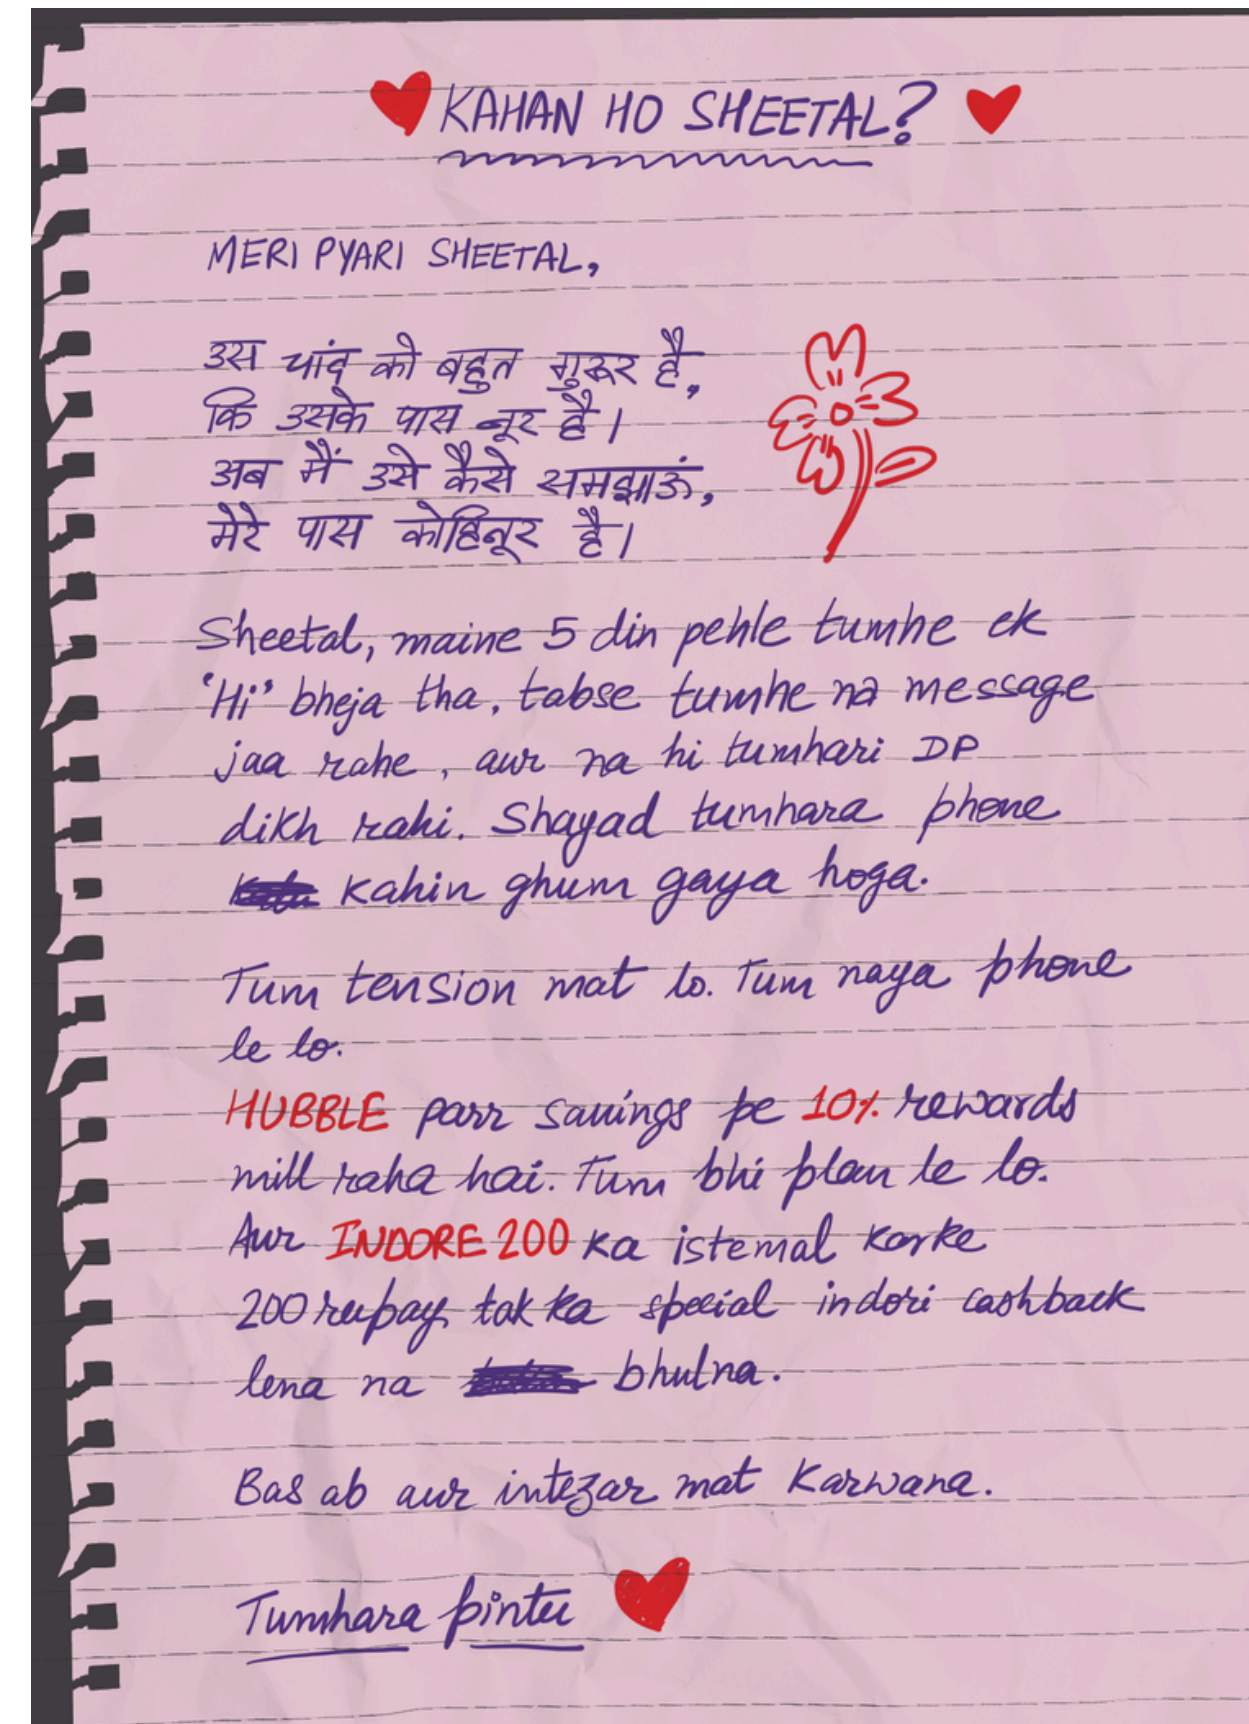 KAHAN HO SHEETAL?
MERI PYARI SHEETAL,
उस चांद को बहुत गुरूर है,
कि उसके पास नूर है।
अब मैं उसे कैसे समझाऊं,
मेरे पास कोहिनूर है।
Sheetal, maine 5 din pehle tumhe ek
'Hi' bheja tha, tabse tumhe na message
jaa rahe, aur na hi tumhari DP
dikh rahi. Shayad tumhara phone
kahin ghum gaya hoga.
Tum tension mat lo. Tum naya phone
le lo.
HUBBLE parr savings pe 10% rewards
mill raha hai. Tum bhi plan le lo.
Aur INDORE 200 ka istemal karke
200 rupay tak ka special indori cashback
lena na bhulna.
Bas ab aur intezar mat karwana.
Tumhara pintu